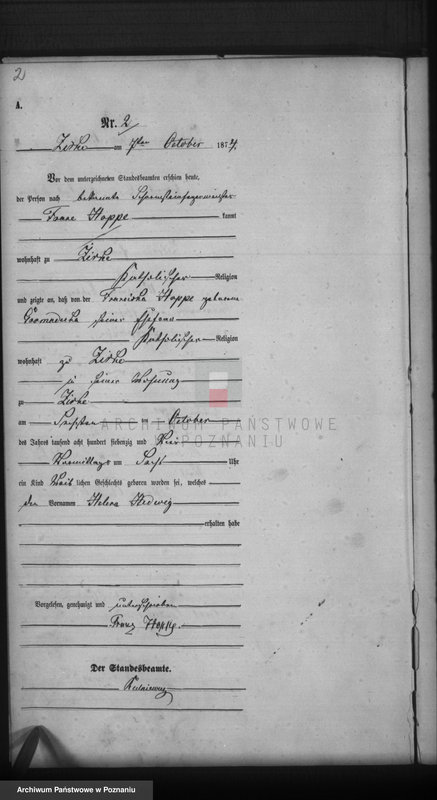 2
A.
Nr. 2
Zirke am 7ten October 1874.
Vor dem unterzeichneten Standesbeamten erschien heute,
der Person nach bekannte Schornsteinfegermeister
Franz Hoppe kannt
wohnhaft zu Zirke
Katholischer Religion
und zeigte an, daß von der Franciska Hoppe geborene
seiner Ehefrau
Katholischer Religion
wohnhaft zu Zirke
in seiner Wohnung
zu Zirke
am Sechsten October
des Jahres tausend acht hundert siebenzig und Vier
Vormittags um Sechs Uhr
ein Kind Weiblichen Geschlechts geboren worden sei, welches
den Vornamen Helena Hedwig
erhalten habe
ARCHIWUM PAŃSTWOWE
POZNANIU
Vorgelesen, genehmigt und unterschrieben
Franz Hoppe.
Der Standesbeamte.
Archiwum Państwowe w Poznaniu